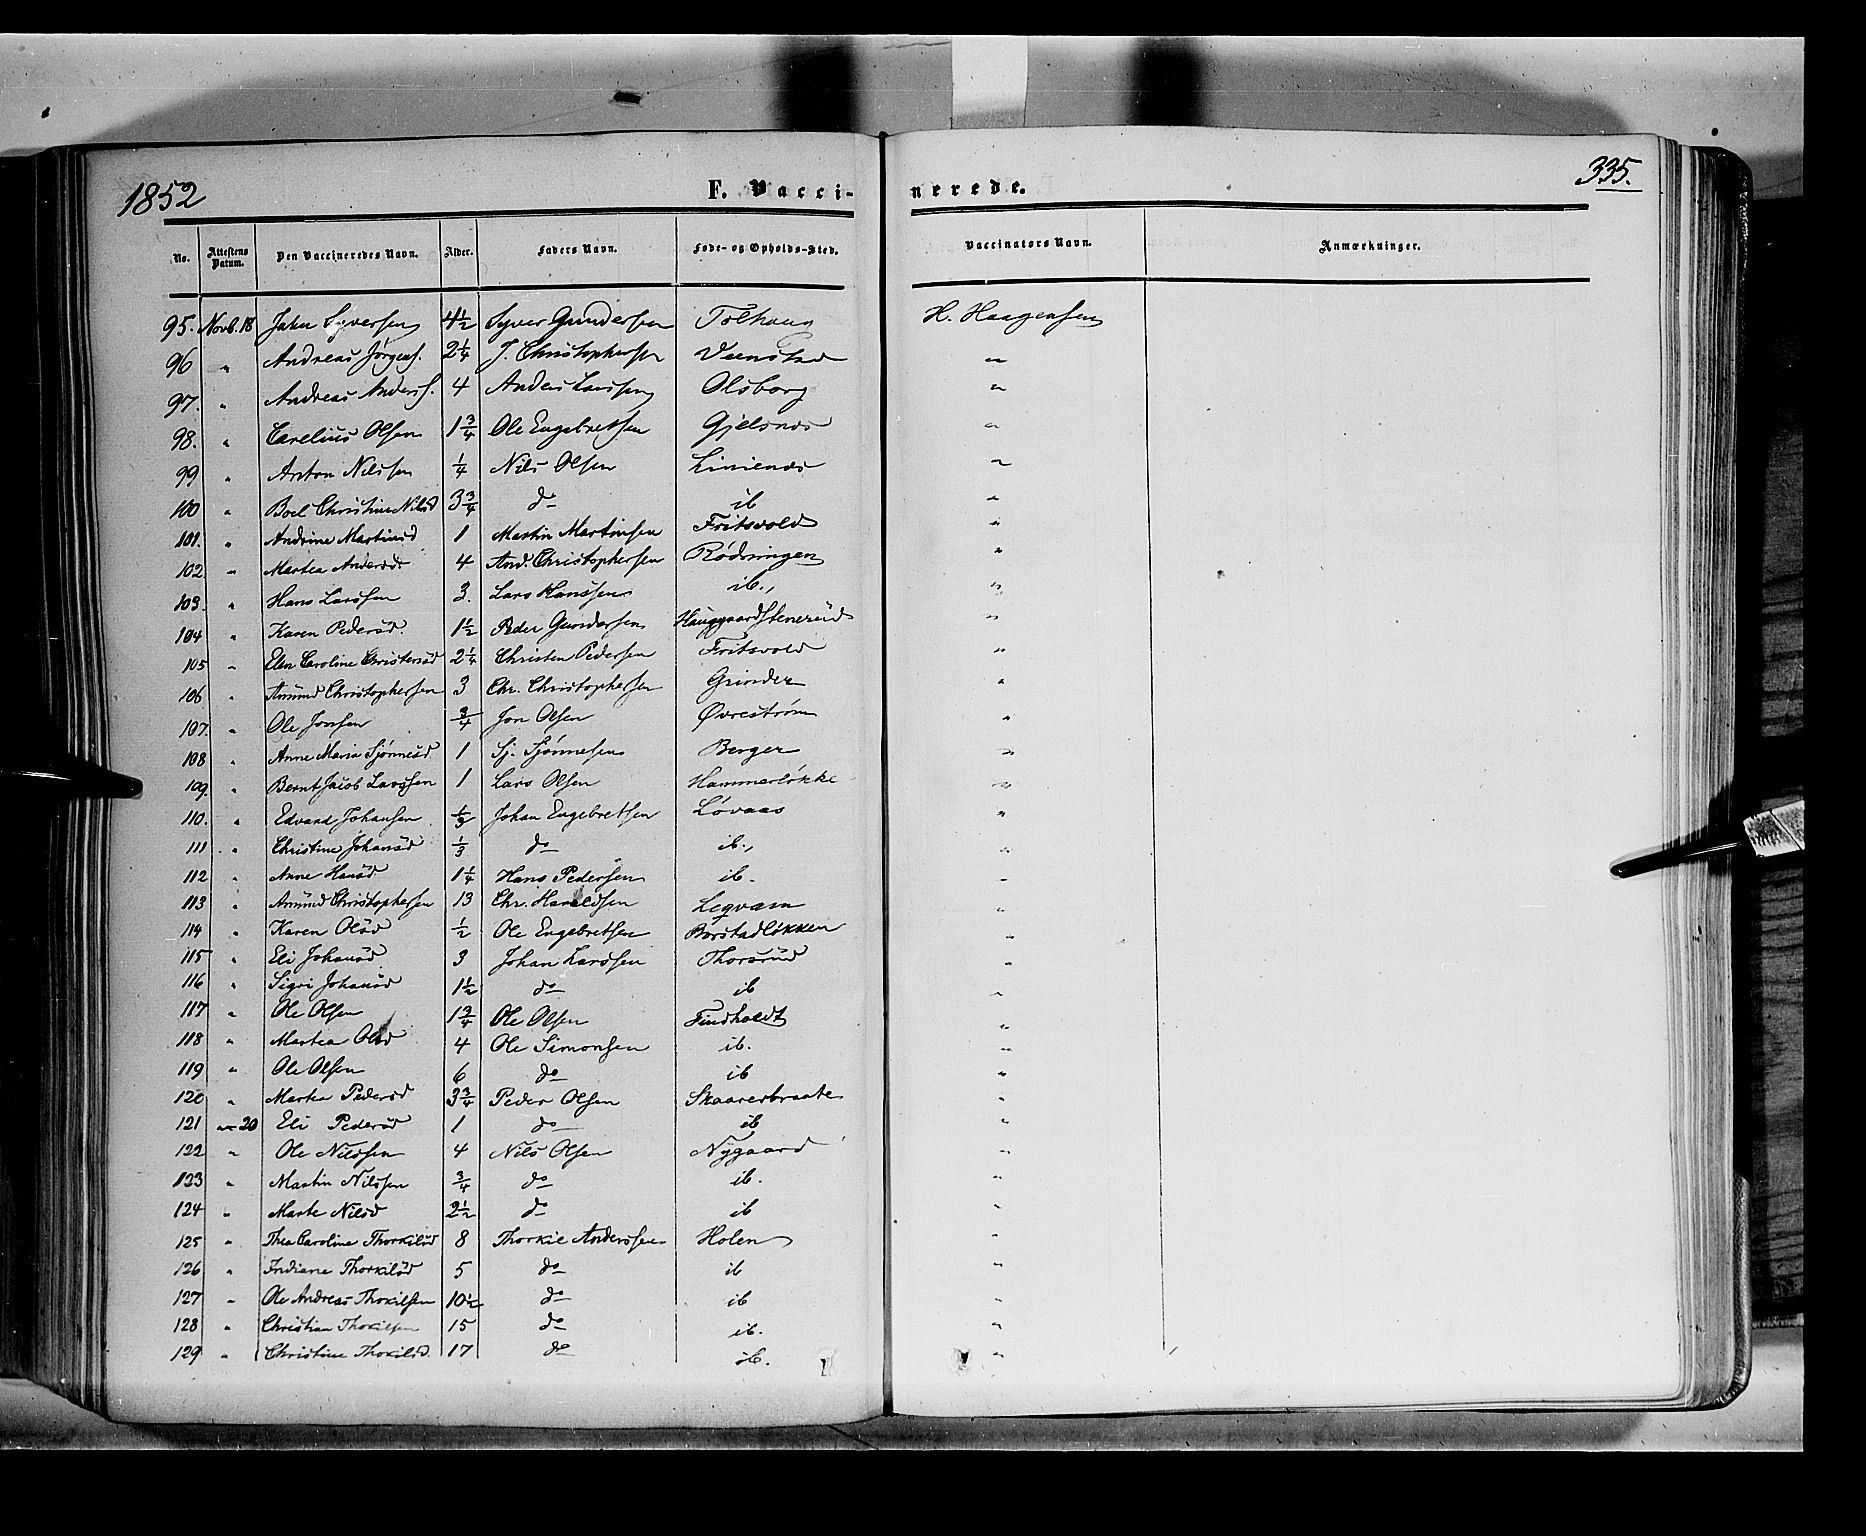 1852
F. Vaccinerede.
335.
No. Attestens Datum. Den Vaccineredes Navn. Alder. Faders Navn. Føde- og Opholds-Sted. Vaccinators Navn. Anmærkninger.
95. Novb. 18 Syversen 4½ Syver Gundersen Tolhaug H. Haagensen
96 " Andreas Jørgens. 2¼ J. Christophersen Veenstad "
97. " Andreas Anders. 4 Anders Larssen Olsborg "
98. " Carelius Olsen 1¾ Ole Engebretsen Gjelsnes "
99 " Anton Nilssen ¼ Nils Olsen Linienes "
100 " Boel Christine Nilsd 3¾ do ib "
101. " Andrine Martinsd 1 Martin Martinsen Fritsvold "
102 " Martea Andersd. 4 And. Christophersen Rødningen "
103. " Hans Larssen 3. Lars Hanssen ib., "
104 " Karen Pedersd. 1½ Peder Gundersen Hauggaardstenerud "
105 " Elen Caroline Christensd 2¼ Christen Pedersen Fritsvold "
106 " Amund Christophersen 3 Chr. Christophersen Grinder "
107. " Ole Jonsen ¾ Jon Olsen Øvrestrøm "
108 " Anne Maria Sjønnesd 1 Sj. Sjønnesen Berger "
109. " Bernt Jacob Larssen 1 Lars Olsen Hammerløkke "
110. " Edvard Johansen ⅓ Johan Engebretsen Løvaas "
111 " Christine Johansd ⅓ do ib., "
112 " Anne Hansd 1¼ Hans Pedersen ib. "
113 " Amund Christophersen 13 Chr. Haraldsen Legvam "
114 " Karen Olsd ½ Ole Engebretsen Borstadløkken "
115 " Eli Johansd 3 Johan Larssen Thorsrud "
116 " Sigri Johansd 1½ do ib "
117 " Ole Olsen 1¾ Ole Olsen Findholdt "
118 " Martea Olsd 4 Ole Simonsen ib. "
119 " Ole Olsen 6 do ib "
120 " Martea Pedersd 3¾ Peder Olsen Skaaresbraate "
121 " 20 Eli Pedersd 1 do ib "
122 " Ole Nilssen 4 Nils Olsen Nygaard "
123 " Martin Nilssen ¾ do ib. "
124 " Marte Nilsd 2½ do ib "
125 " Thea Caroline Thorkilsd 8 Thorkil Anderssen Holen "
126 " Indiane Thorkilsd 5 do ib "
127 " Ole Andreas Thokilsen 10½ do ib "
128 " Christian Thokilsen 15 do ib. "
129 " Christine Thokilsd. 17 do ib. "